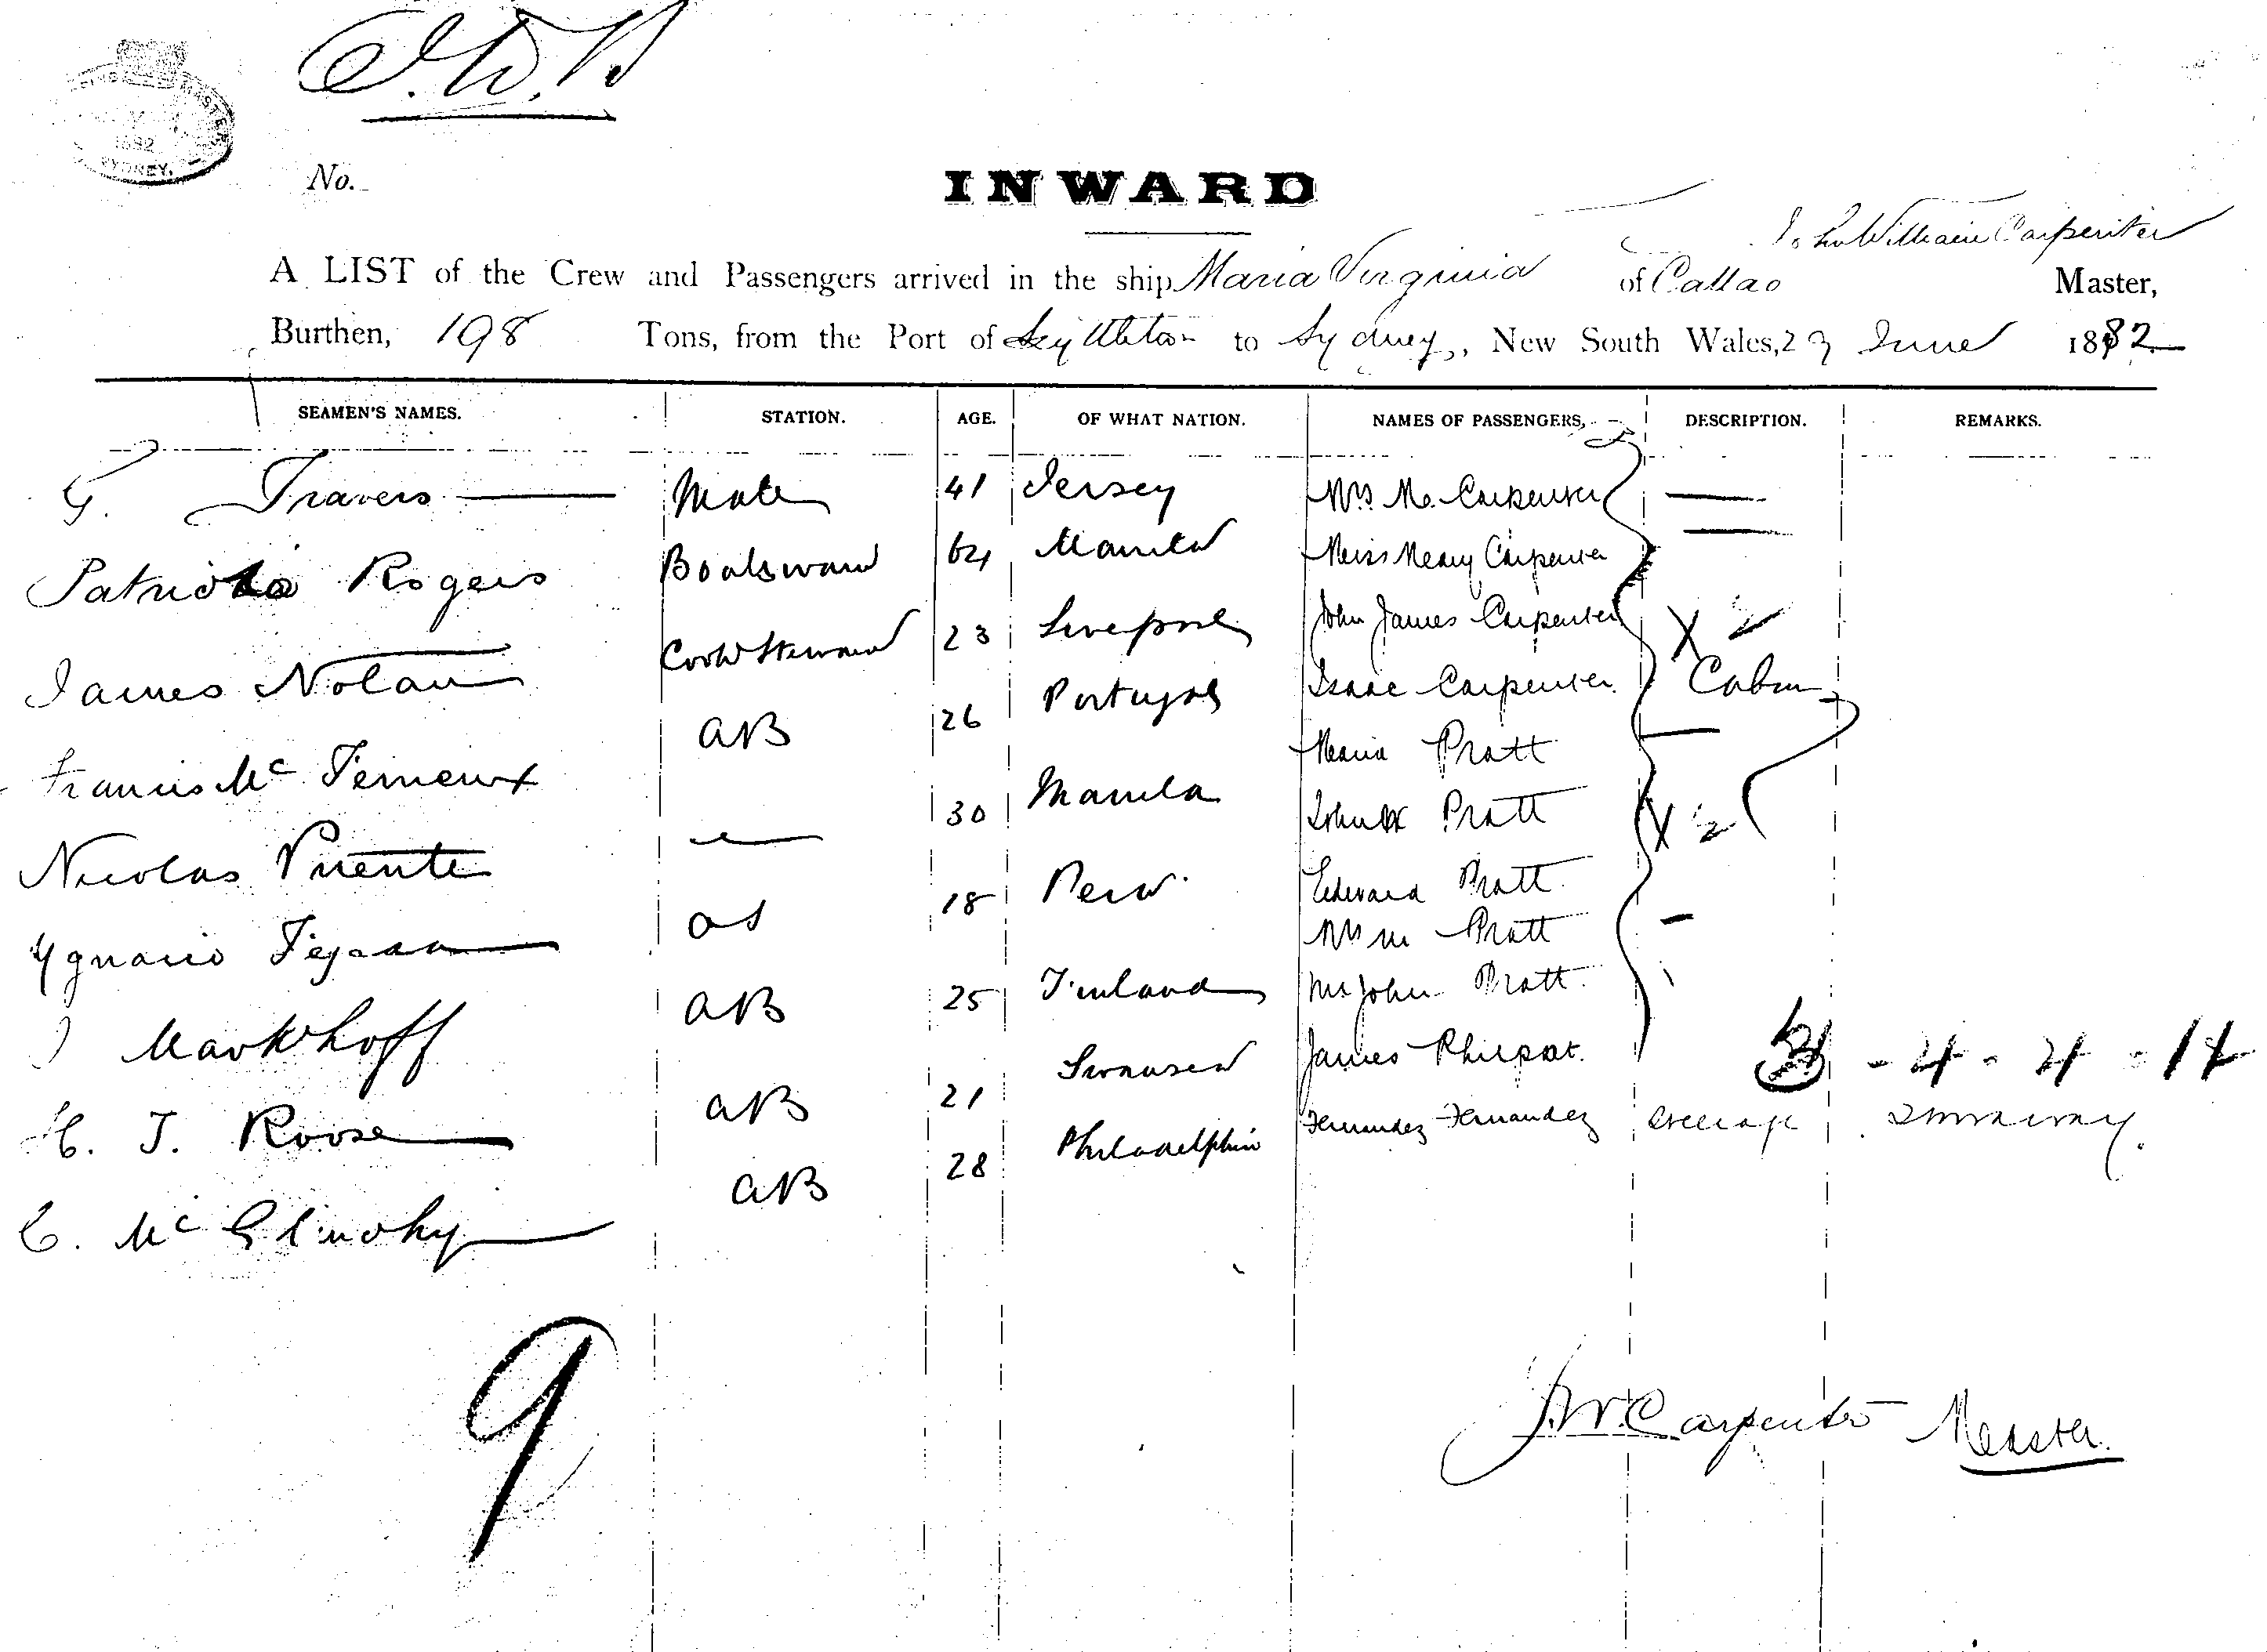 J.W.B
1882
SYDNEY.
No.
INWARD
John William Carpenter
A LIST of the Crew and Passengers arrived in the ship Maria Virginia of Callao Master,
Burthen, 198 Tons, from the Port of Lyttleton to Sydney, New South Wales, 23 June 1882
SEAMEN'S NAMES. STATION. AGE. OF WHAT NATION. NAMES OF PASSENGERS. DESCRIPTION. REMARKS.
G. Travers Mate 41 Jersey Mrs M. Carpenter
Rogers Boatswain 64 Manila Miss Mary Carpenter
James Nolan Cook & Steward 23 Liverpool John James Carpenter X 2
Francis Mc AB 26 Portugal Isaac Carpenter Cabin
Maria Pratt
Nicolas Puente 30 Manila Pratt X 2
Ygnacio 18 Peru Edward Pratt
OS Mrs M Pratt
J Markhoff AB 25 Finland Mr John Pratt
C. J. Roose AB 21 Swansea James Philpot. 3 - 4 - 4 - 11
C. Mc Glinchy AB 28 Philadelphia Fernandez Fernandez Steerage Runaway.
9
J.W. Carpenter Master.